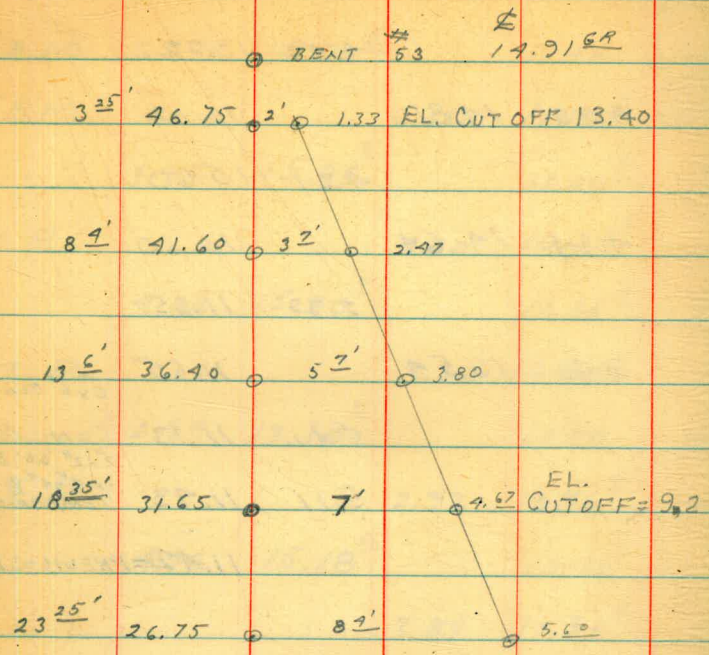 ₵
BENT #53 14.91 GR
3 25' 46.75 2' 1.33 EL. CUT OFF 13.40
8 4' 41.60 3 7' 2.47
13 6' 36.40 5 7' 3.80
EL.
18 35' 31.65 7' 4.67 CUTOFF = 9.2
23 25' 26.75 8 4' 5.60